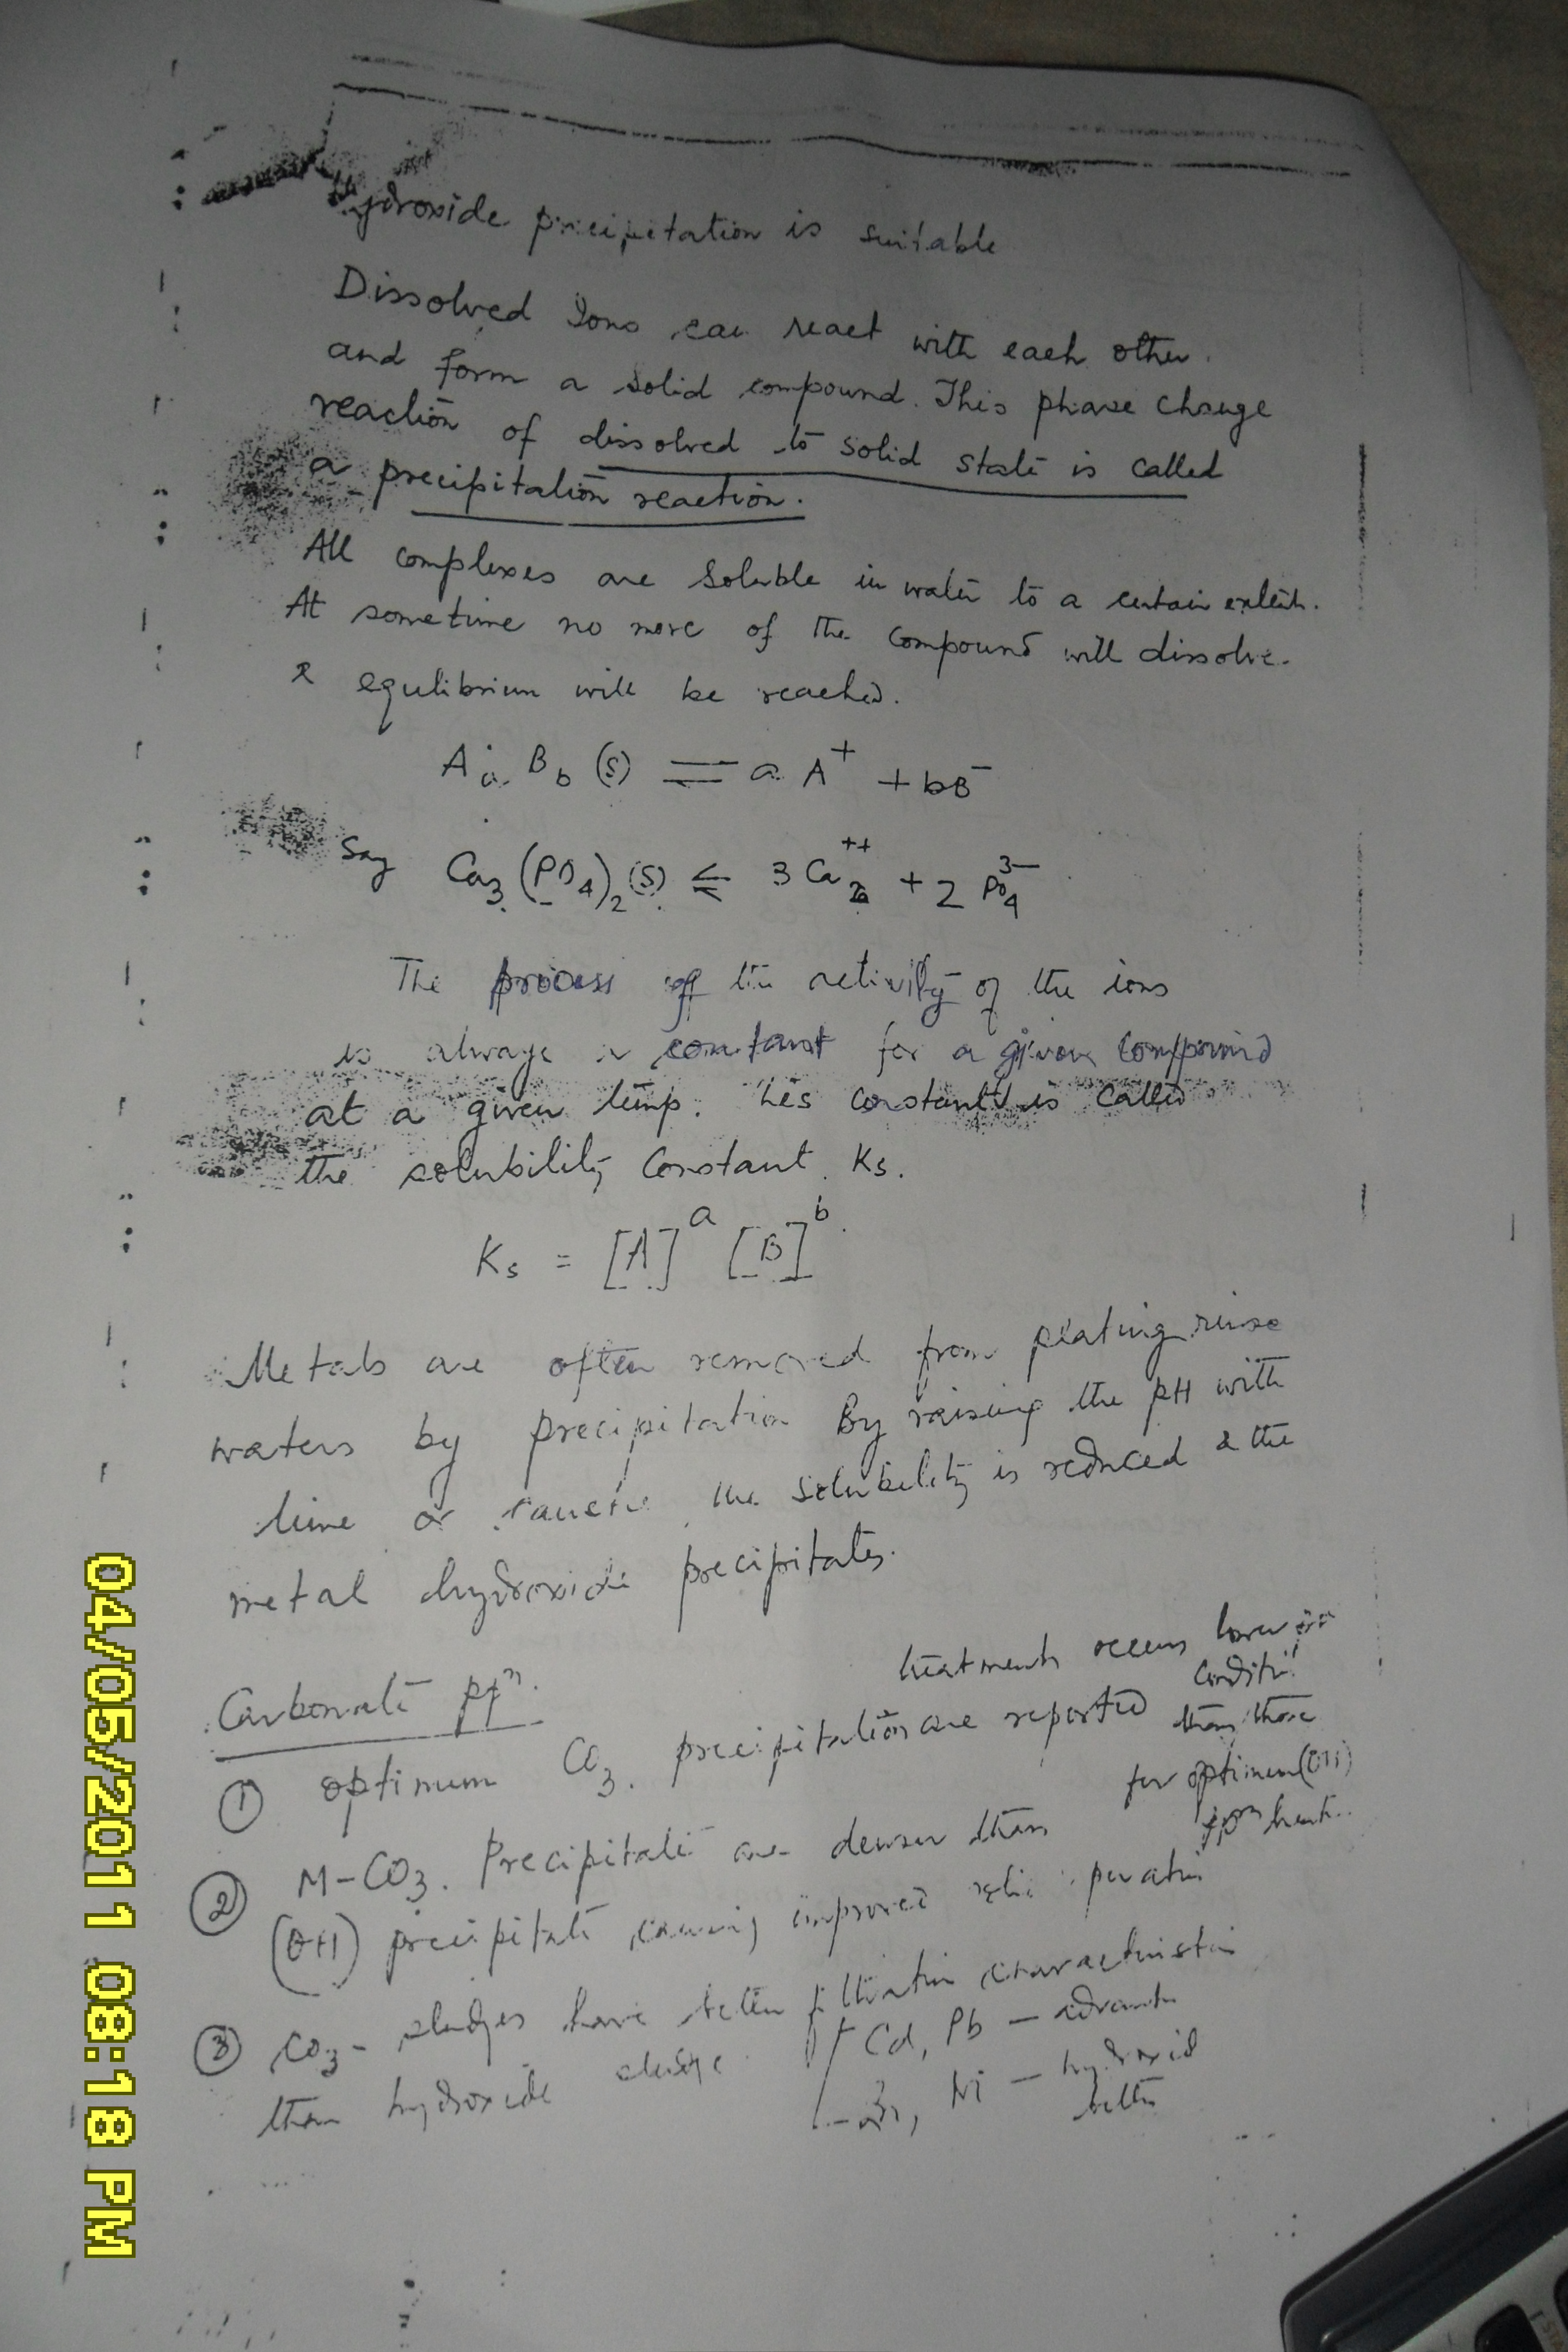 Hydroxide precipitation is suitable
Dissolved Ions can react with each other.
and form a solid compound. This phase change
reaction of dissolved to solid state is called
a precipitation reaction.
All complexes are soluble in water to a certain extent.
At sometime no more of the compound will dissolve.
& equlibrium will be reached.
Aa Bb (s) ⇌ a A⁺ + bB⁻
Say Ca₃(PO₄)₂(s) ⇌ 3 Ca⁺⁺ + 2 PO₄³⁻
The process of the activity of the ions
is always a constant for a given compound
at a given temp. This constant is called
the solubility Constant Ks.
Ks = [A]ᵃ [B]ᵇ
Metals are often removed from plating rinse
waters by precipitation By raising the pH with
lime or caustic the solubility is reduced & the
metal hydroxide precipitates.
Carbonate ppⁿ.
① optimum CO₃. precipitation are reported
treatments occurs lower
conditi
than those
for optimum (OH)
② M-CO₃. Precipitate are denser than
(OH) precipitate, causing improved
③ CO₃- sludges have better filtration characteristic
than hydroxide sludge
Cd, Pb —
Zn, Ni — hydroxid
better
04/05/2011 08:18 PM